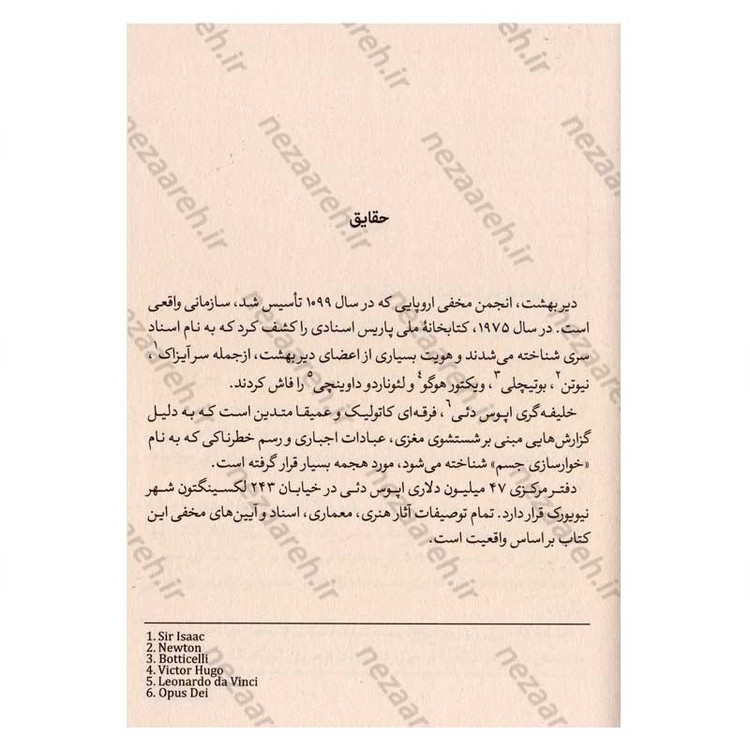 حقایق
دیر بهشت، انجمن مخفی اروپایی که در سال ۱۰۹۹ تأسیس شد، سازمانی واقعی
است. در سال ۱۹۷۵، کتابخانهٔ ملی پاریس اسنادی را کشف کرد که به نام اسناد
سری شناخته می‌شدند و هویت بسیاری از اعضای دیر بهشت، ازجمله سر آیزاک۱،
نیوتن۲، بوتیچلی۳، ویکتور هوگو۴ و لئوناردو داوینچی۵ را فاش کردند.
خلیفه‌گری اپوس دئی۶، فرقه‌ای کاتولیک و عمیقا متدین است که به دلیل
گزارش‌هایی مبنی بر شستشوی مغزی، عبادات اجباری و رسم خطرناکی که به نام
«خوارسازی جسم» شناخته می‌شود، مورد هجمه بسیار قرار گرفته است.
دفتر مرکزی ۴۷ میلیون دلاری اپوس دئی در خیابان ۲۴۳ لکسینگتون شهر
نیویورک قرار دارد. تمام توصیفات آثار هنری، معماری، اسناد و آیین‌های مخفی این
کتاب بر اساس واقعیت است.
1. Sir Isaac
2. Newton
3. Botticelli
4. Victor Hugo
5. Leonardo da Vinci
6. Opus Dei
nezaareh.ir